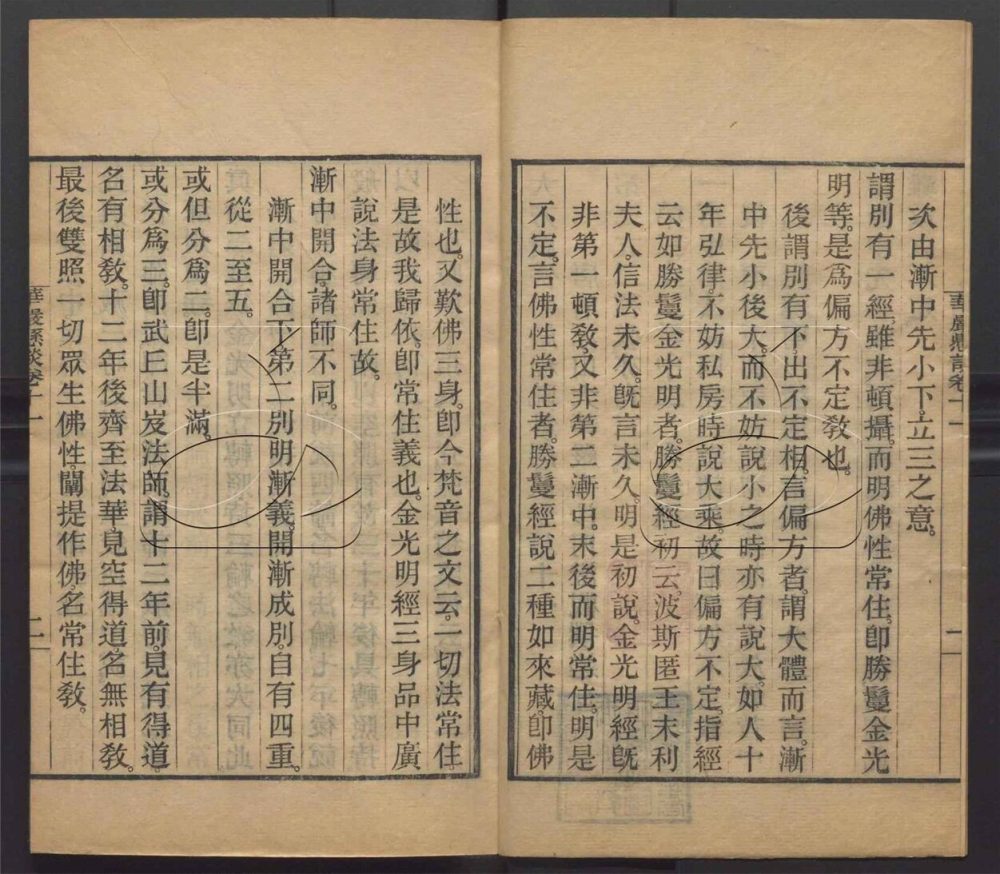 次由漸中先小下立三之意。
謂別有一經雖非頓攝。而明佛性常住。卽勝鬘金光
明等。是爲偏方不定敎也。
後謂別有下。出不定相。言偏方者。謂大體而言。漸
中先小後大。而不妨說小之時亦有說大。如人十
年弘律。不妨私房時說大乘。故曰偏方不定。指經
云如勝鬘金光明者。勝鬘經初云。波斯匿王末利
夫人。信法未久。旣言未久。明是初說。金光明經旣
非第一頓敎。又非第二漸中。末後而明常住。明是
不定。言佛性常住者。勝鬘經說二種如來藏。卽佛
性也。又歎佛三身。卽今梵音之文云。一切法常住。
是故我歸依。卽常住義也。金光明經三身品中廣
說法身常住故。
漸中開合。諸師不同。
漸中開合下。第二別明漸義。開漸成別。自有四重。
從二至五。
或但分爲二。卽是半滿。
或分爲三。卽武丘山岌法師。謂十二年前。見有得道。
名有相敎。十二年後齊至法華。見空得道。名無相敎。
最後雙照一切眾生佛性。闡提作佛。名常住敎。